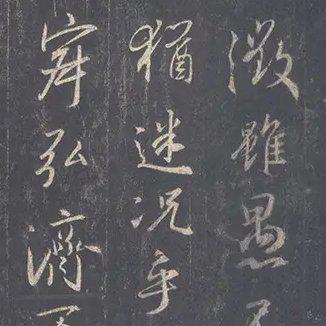 徵雖愚
猶迷况乎
寂弘濟